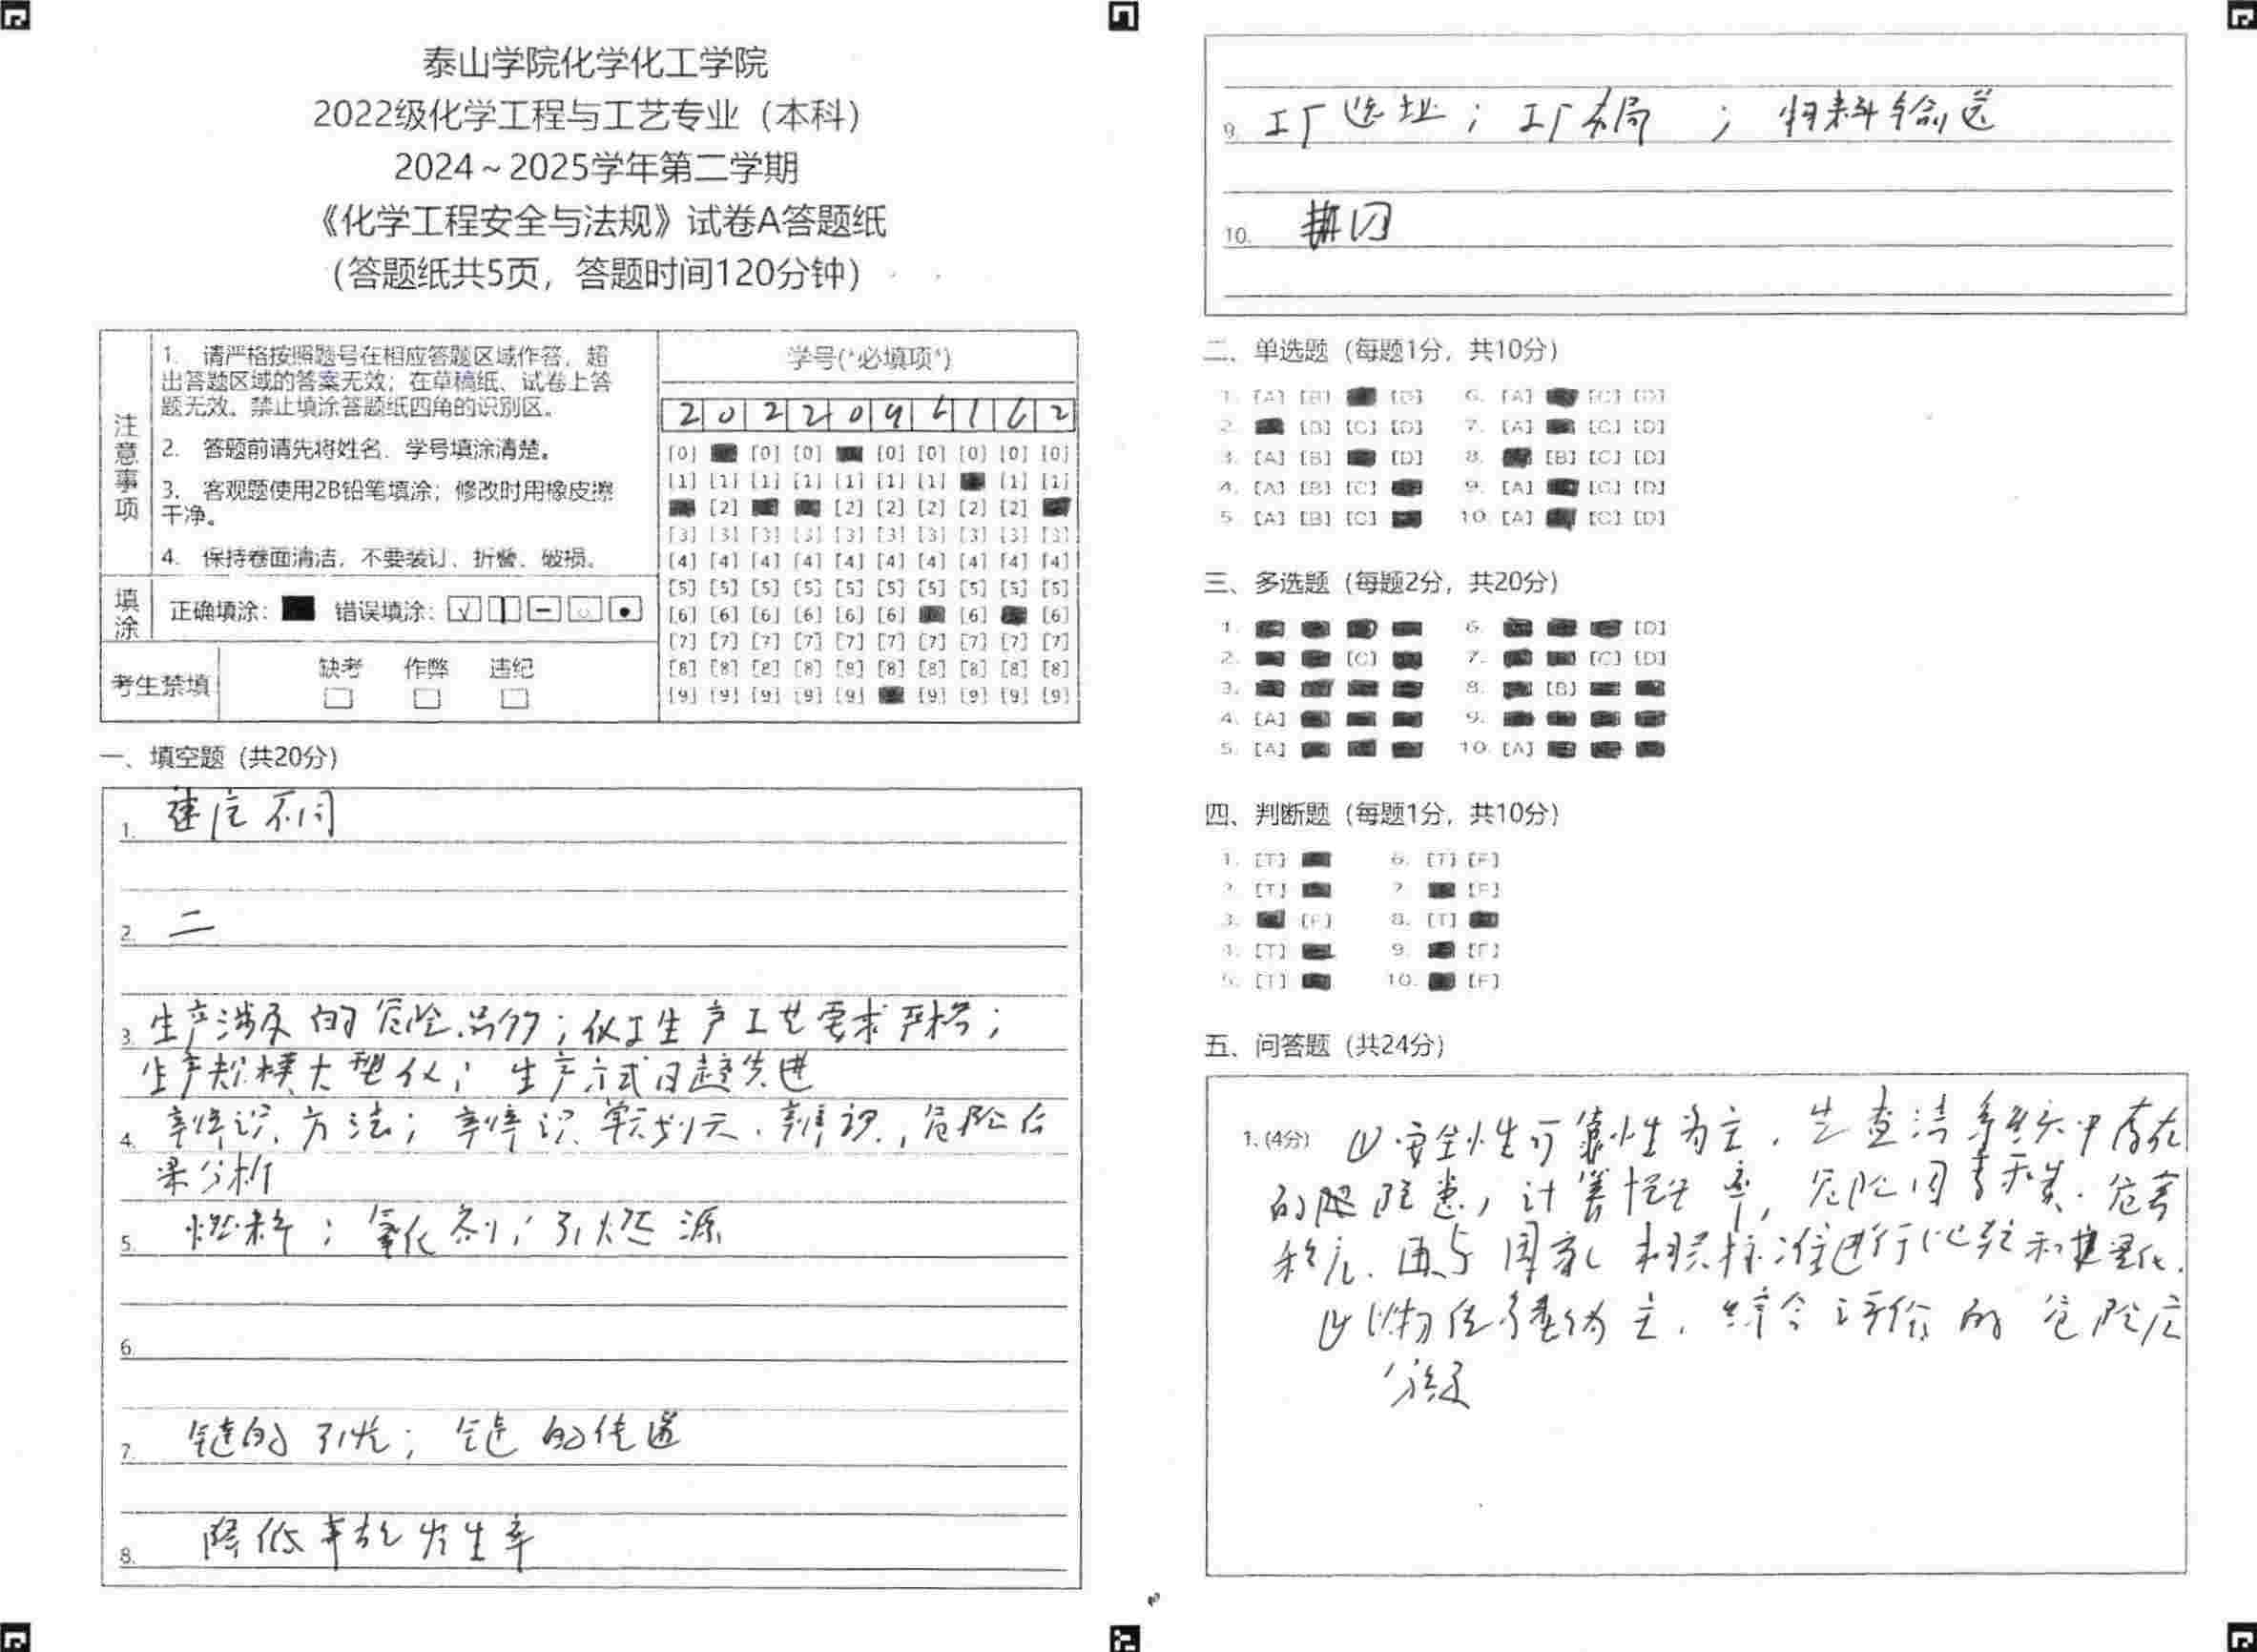 泰山学院化学化工学院
2022级化学工程与工艺专业（本科）
2024～2025学年第二学期
《化学工程安全与法规》试卷A答题纸
（答题纸共5页，答题时间120分钟）
注意事项
1. 请严格按照题号在相应答题区域作答，超
出答题区域的答案无效；在草稿纸、试卷上答
题无效。禁止填涂答题纸四角的识别区。
2. 答题前请先将姓名、学号填涂清楚。
3. 客观题使用2B铅笔填涂；修改时用橡皮擦
干净。
4. 保持卷面清洁，不要装订、折叠、破损。
填涂 正确填涂： 错误填涂：
考生禁填 缺考 作弊 违纪
学号(*必填项*)
2022096162
[0] [0] [0] [0] [0] [0] [0] [0]
[1] [1] [1] [1] [1] [1] [1] [1] [1]
[2] [2] [2] [2] [2] [2]
[3] [3] [3] [3] [3] [3] [3] [3] [3] [3]
[4] [4] [4] [4] [4] [4] [4] [4] [4] [4]
[5] [5] [5] [5] [5] [5] [5] [5] [5] [5]
[6] [6] [6] [6] [6] [6] [6] [6]
[7] [7] [7] [7] [7] [7] [7] [7] [7] [7]
[8] [8] [8] [8] [8] [8] [8] [8] [8] [8]
[9] [9] [9] [9] [9] [9] [9] [9] [9]
一、填空题（共20分）
1. 速度不同
2. 二
3. 生产涉及的危险品多；化工生产工艺要求严格；
生产规模大型化；生产方式日趋先进
4. 辨识方法；辨识单元划元、辨识，危险后
果分析
5. 燃料；氧化剂；引燃源
6.
7. 链的引发；链的传递
8. 降低事故发生率
9. 工厂选址；工厂布局；物料输送
10.
二、单选题（每题1分，共10分）
1. [A] [B] [D] 6. [A] [C] [D]
2. [B] [C] [D] 7. [A] [C] [D]
3. [A] [B] [D] 8. [B] [C] [D]
4. [A] [B] [C] 9. [A] [C] [D]
5. [A] [B] [C] 10. [A] [C] [D]
三、多选题（每题2分，共20分）
1. 6. [D]
2. [C] 7. [C] [D]
3. 8. [B]
4. [A] 9.
5. [A] 10. [A]
四、判断题（每题1分，共10分）
1. [T] 6. [T] [F]
2. [T] 7. [F]
3. [F] 8. [T]
4. [T] 9. [F]
5. [T] 10. [F]
五、问答题（共24分）
1. (4分) (1)安全性可靠性为主，先查清系统中存在
的隐患，计算概率，危险因素种类、危害
程度，再与国家相关标准进行比较和量化.
(2)以物质系数为主，综合评价的危险度
分级